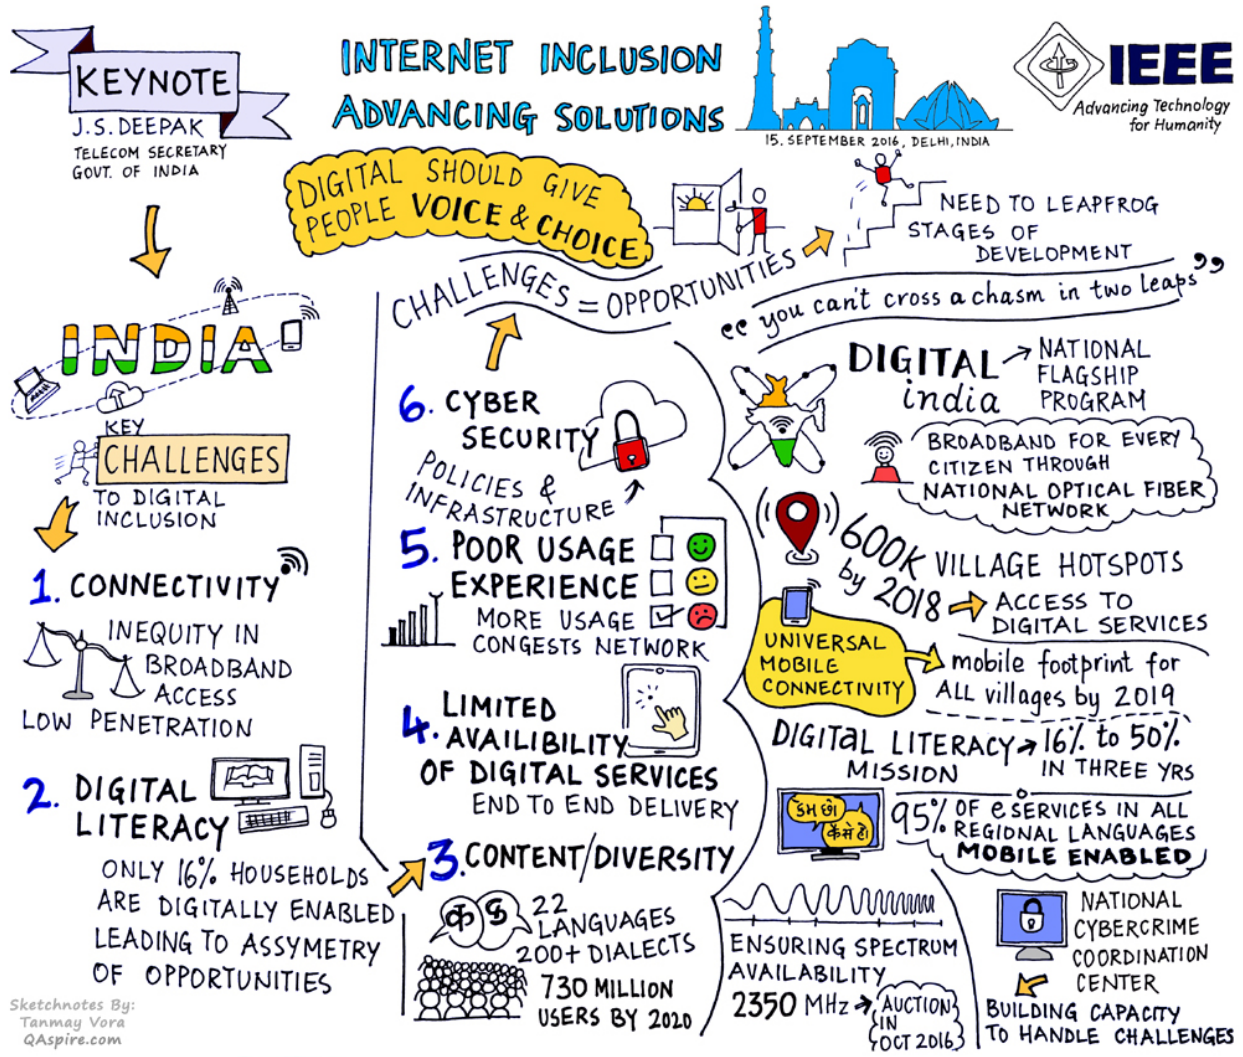 KEYNOTE
J.S. DEEPAK
TELECOM SECRETARY
GOVT. OF INDIA
INTERNET INCLUSION
ADVANCING SOLUTIONS
15. SEPTEMBER 2016, DELHI, INDIA
IEEE
Advancing Technology
for Humanity
DIGITAL SHOULD GIVE
PEOPLE VOICE & CHOICE
INDIA
KEY
CHALLENGES
TO DIGITAL
INCLUSION
1. CONNECTIVITY
INEQUITY IN
BROADBAND
ACCESS
LOW PENETRATION
2. DIGITAL
LITERACY
ONLY 16% HOUSEHOLDS
ARE DIGITALLY ENABLED
LEADING TO ASSYMETRY
OF OPPORTUNITIES
3. CONTENT/DIVERSITY
क
22
LANGUAGES
200+ DIALECTS
730 MILLION
USERS BY 2020
4. LIMITED
AVAILIBILITY
OF DIGITAL SERVICES
END TO END DELIVERY
5. POOR USAGE
EXPERIENCE
MORE USAGE
CONGESTS NETWORK
6. CYBER
SECURITY
POLICIES &
INFRASTRUCTURE
CHALLENGES = OPPORTUNITIES
NEED TO LEAPFROG
STAGES OF
DEVELOPMENT
“you can't cross a chasm in two leaps”
DIGITAL
india
NATIONAL
FLAGSHIP
PROGRAM
BROADBAND FOR EVERY
CITIZEN THROUGH
NATIONAL OPTICAL FIBER
NETWORK
600K VILLAGE HOTSPOTS
by 2018
ACCESS TO
DIGITAL SERVICES
UNIVERSAL
MOBILE
CONNECTIVITY
mobile footprint for
ALL villages by 2019
DIGITAL LITERACY
MISSION
16% to 50%
IN THREE YRS
95% OF eSERVICES IN ALL
REGIONAL LANGUAGES
MOBILE ENABLED
ENSURING SPECTRUM
AVAILABILITY
2350 MHz
AUCTION
IN
OCT 2016
NATIONAL
CYBERCRIME
COORDINATION
CENTER
BUILDING CAPACITY
TO HANDLE CHALLENGES
Sketchnotes By:
Tanmay Vora
QAspire.com